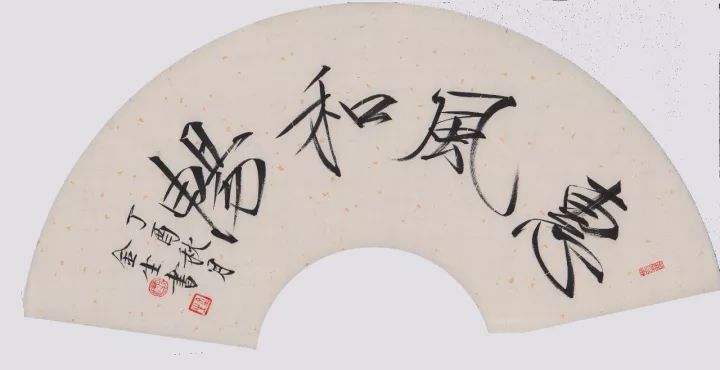 惠風和暢
丁酉秋月
金生書